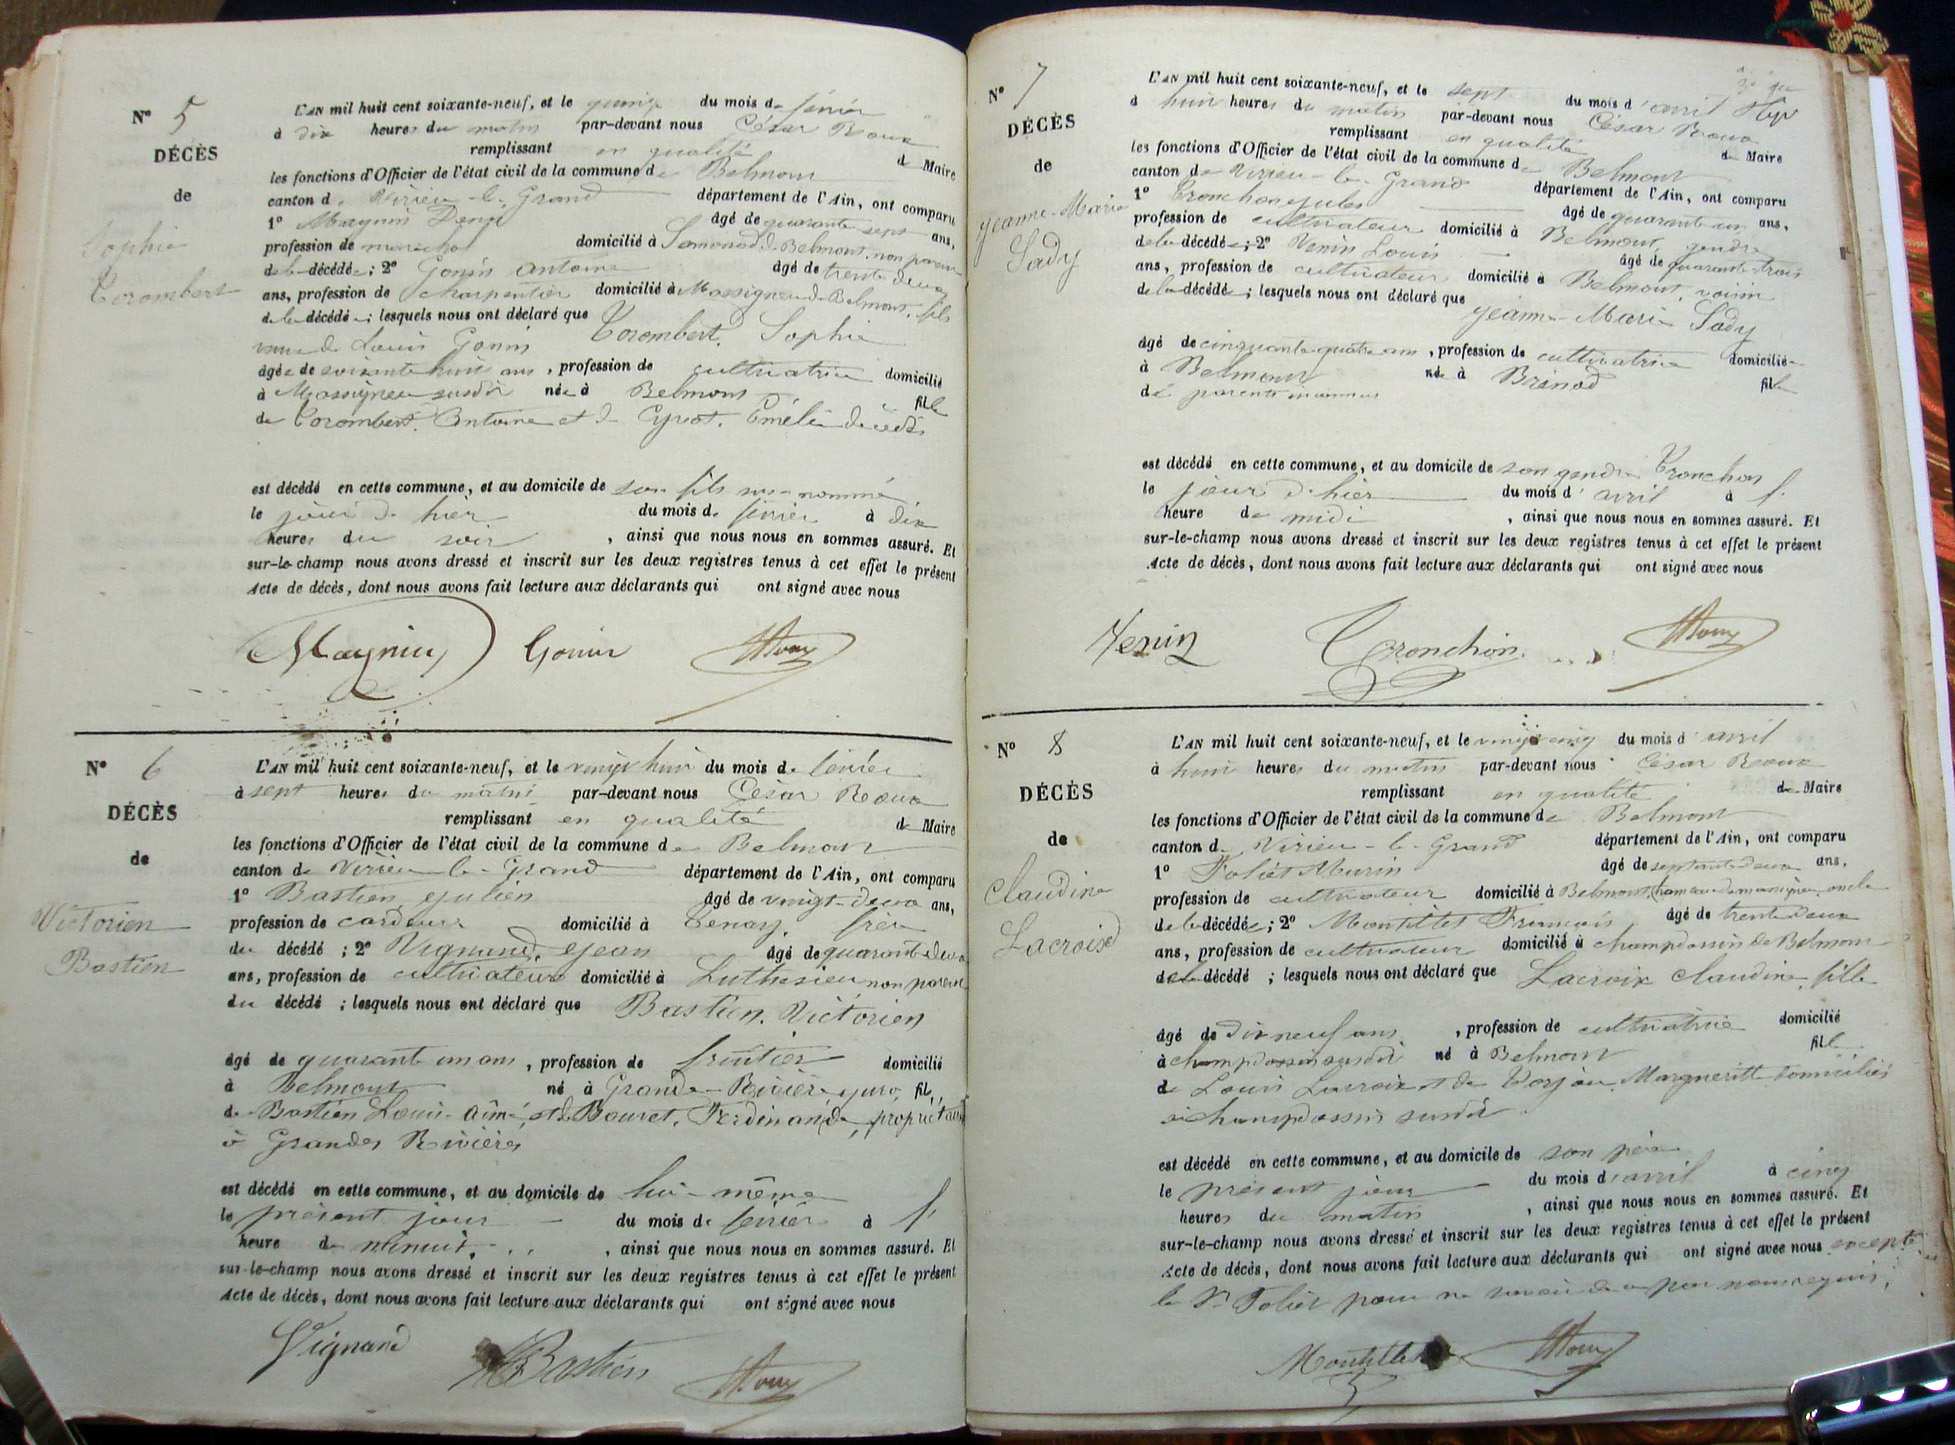 N° 5
DÉCÈS
de
Sophie
Corombert
L'AN mil huit cent soixante-neuf, et le quinze du mois de février
à dix heures du matin par-devant nous César Roux
remplissant en qualité de Maire
les fonctions d'Officier de l'état civil de la commune de Belmont
canton de Virieu-le-Grand département de l'Ain, ont comparu
1° Magnin Denis âgé de quarante sept ans,
profession de domicilié à de Belmont, non parent
de la décédée; 2° Gonin Antoine âgé de trente deux
ans, profession de charpentier domicilié à Massignieu de Belmont, fils
de la décédée; lesquels nous ont déclaré que Corombert, Sophie
veuve de Louis Gonin
âgée de soixante huit ans, profession de cultivatrice domicilié
à Massignieu susdit née à Belmont fille
de Corombert, Antoine et de Emélie décédés
est décédé en cette commune, et au domicile de son fils sus-nommé
le jour d'hier du mois de février à dix
heures du soir, ainsi que nous nous en sommes assuré. Et
sur-le-champ nous avons dressé et inscrit sur les deux registres tenus à cet effet le présent
Acte de décès, dont nous avons fait lecture aux déclarants qui ont signé avec nous
Magnin Gonin Roux
N° 6
DÉCÈS
de
Victorien
Bastien
L'AN mil huit cent soixante-neuf, et le vingt huit du mois de février
à sept heures du matin par-devant nous César Roux
remplissant en qualité de Maire
les fonctions d'Officier de l'état civil de la commune de Belmont
canton de Virieu-le-Grand département de l'Ain, ont comparu
1° Bastien Julien âgé de vingt-deux ans,
profession de cardeur domicilié à Tenay, frère
du décédé; 2° Vignand, Jean âgé de quarante deux
ans, profession de cultivateur domicilié à Luthezieu non parent
du décédé; lesquels nous ont déclaré que Bastien, Victorien
âgé de quarante un ans, profession de fruitier domicilié
à Belmont né à Grande-Rivière Jura, fils
de Bastien Louis Aimé, et de Bouvet, Ferdinande, propriétaires
à Grandes Rivières
est décédé en cette commune, et au domicile de lui-même
le présent jour du mois de février à 1
heure de minuit, ainsi que nous nous en sommes assuré. Et
sur-le-champ nous avons dressé et inscrit sur les deux registres tenus à cet effet le présent
Acte de décès, dont nous avons fait lecture aux déclarants qui ont signé avec nous
Vignand Bastien Roux
N° 7
DÉCÈS
de
Jeanne-Marie
Sady
L'AN mil huit cent soixante-neuf, et le sept du mois d'avril
à huit heures du matin par-devant nous César Roux
remplissant en qualité de Maire
les fonctions d'Officier de l'état civil de la commune de Belmont
canton de Virieu-le-Grand département de l'Ain, ont comparu
1° Tronchon Jules âgé de quarante un ans,
profession de cultivateur domicilié à Belmont, gendre
de la décédée; 2° Venin Louis âgé de quarante trois
ans, profession de cultivateur domicilié à Belmont, voisin
de la décédée; lesquels nous ont déclaré que Jeanne-Marie Sady
âgé de cinquante quatre ans, profession de cultivatrice domiciliée
à Belmont née à Brénod fille
de parents inconnus
est décédé en cette commune, et au domicile de son gendre Tronchon
le jour d'hier du mois d'avril à 1
heure de midi, ainsi que nous nous en sommes assuré. Et
sur-le-champ nous avons dressé et inscrit sur les deux registres tenus à cet effet le présent
Acte de décès, dont nous avons fait lecture aux déclarants qui ont signé avec nous
Venin Tronchon Roux
N° 8
DÉCÈS
de
Claudine
Lacroix
L'AN mil huit cent soixante-neuf, et le vingt cinq du mois d'avril
à huit heures du matin par-devant nous César Roux
remplissant en qualité de Maire
les fonctions d'Officier de l'état civil de la commune de Belmont
canton de Virieu-le-Grand département de l'Ain, ont comparu
1° Foliet âgé de septante deux ans,
profession de cultivateur domicilié à Belmont, hameau de Massignieu, oncle
de la décédée; 2° Montillet François âgé de trente deux
ans, profession de cultivateur domicilié à Champdossin de Belmont
de la décédé; lesquels nous ont déclaré que Lacroix Claudine, fille
âgé de dix neuf ans, profession de cultivatrice domicilié
à Champdossin susdit né à Belmont fille
de Louis Lacroix et de Marguerite domiciliés
à Champdossin susdit
est décédé en cette commune, et au domicile de son père
le présent jour du mois d'avril à cinq
heures du matin, ainsi que nous nous en sommes assuré. Et
sur-le-champ nous avons dressé et inscrit sur les deux registres tenus à cet effet le présent
Acte de décès, dont nous avons fait lecture aux déclarants qui ont signé avec nous excepté
le Sr Foliet pour ne savoir de ce par nous requis.
Montillet Roux